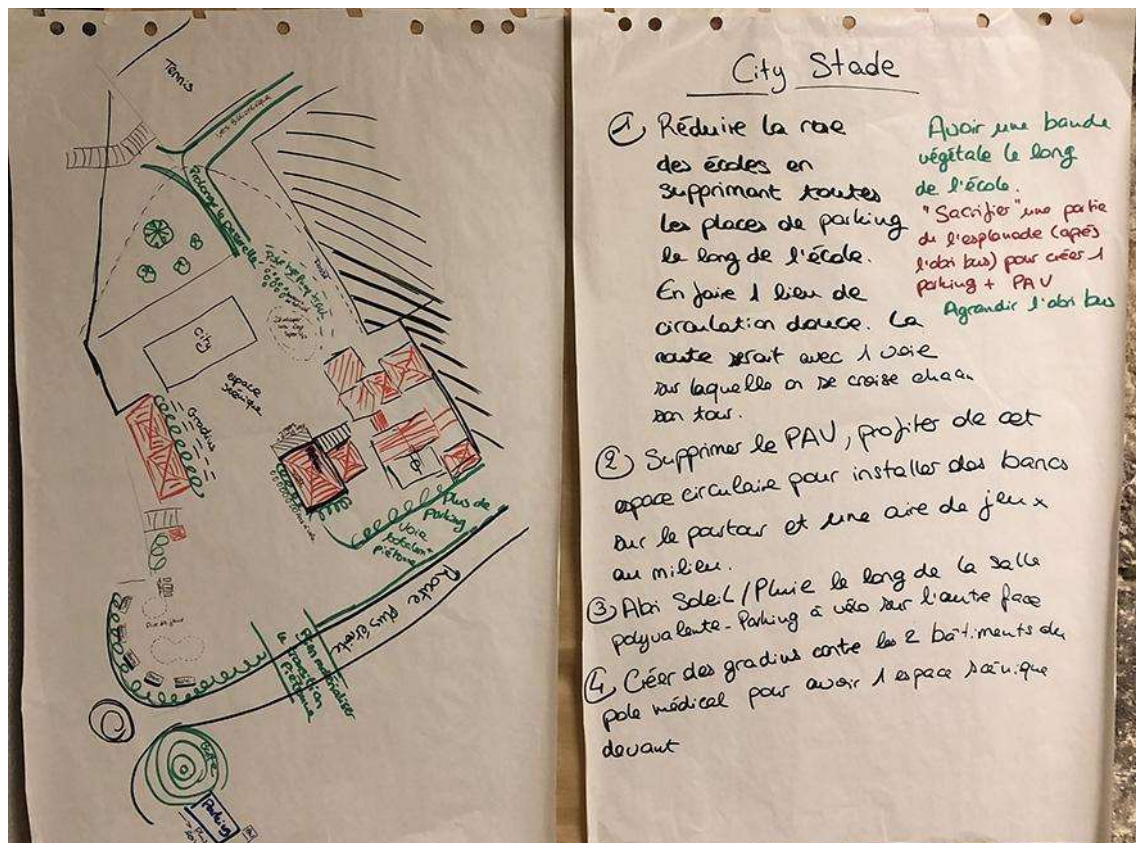 Tennis
vers bibliothèque
Prolonger la passerelle
City
espace
scénique
Gradins
plus de
parking
voie
piétonne
Route plus étroite
Bien matérialiser
la
transition
piétonne
Butte
Parking
City Stade
1 Réduire la rue
des écoles en
supprimant toutes
les places de parking
le long de l'école.
En faire 1 lieu de
circulation douce. La
route serait avec 1 voie
sur laquelle on se croise chacun
son tour.
Avoir une bande
végétale le long
de l'école.
"Sacrifier" une partie
de l'esplanade (après
l'abri bus) pour créer 1
parking + PAV
Agrandir l'abri bus
2 Supprimer le PAV, profiter de cet
espace circulaire pour installer des bancs
sur le pourtour et une aire de jeux
au milieu.
3 Abri Soleil/Pluie le long de la salle
polyvalente - Parking à vélo sur l'autre face
4 Créer des gradins contre les 2 bâtiments du
pole médical pour avoir 1 espace scénique
devant